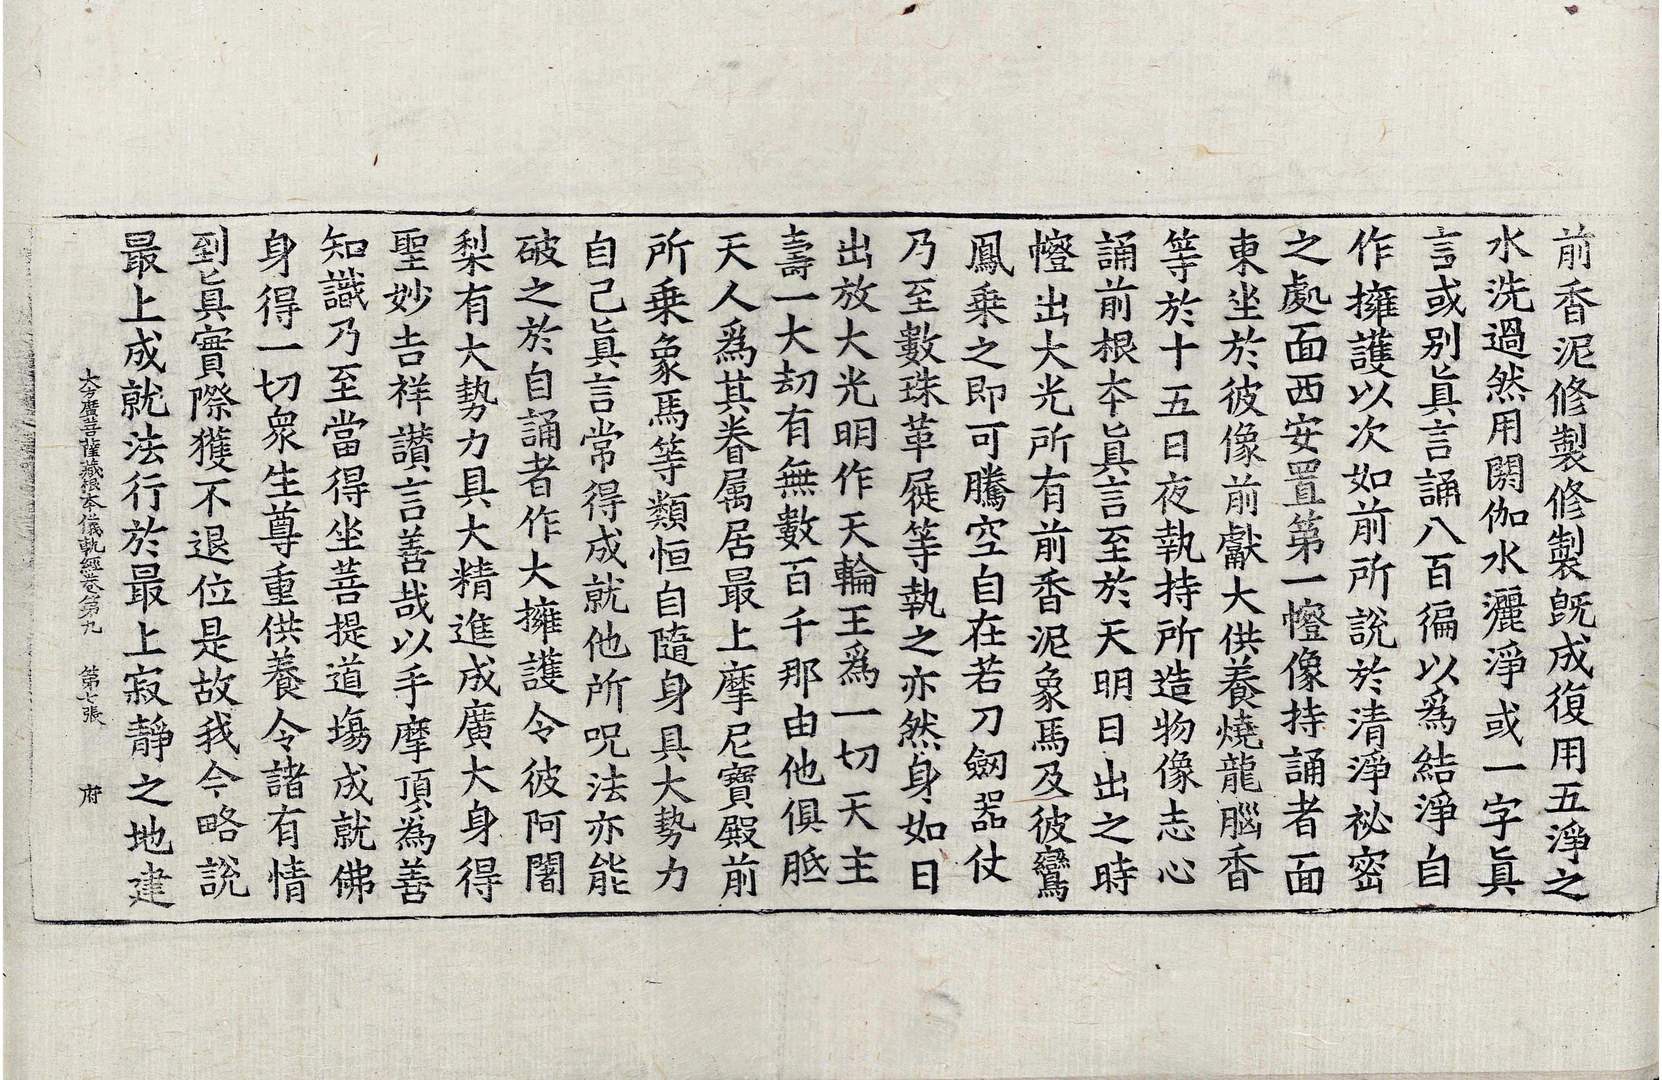 前香泥修製修製旣成復用五淨之
水洗過然用閼伽水灑淨或一字眞
言或别眞言誦八百徧以爲結淨自
作擁護以次如前所說於清淨祕密
之處面西安置第一㡧像持誦者面
東坐於彼像前獻大供養燒龍腦香
等於十五日夜執持所造物像志心
誦前根本眞言至於天明日出之時
㡧出大光所有前香泥象馬及彼鸞
鳳乗之即可騰空自在若刀劒器仗
乃至數珠革屣等執之亦然身如日
出放大光明作天輪王爲一切天主
壽一大劫有無數百千那由他俱胝
天人爲其眷属居最上摩尼寶殿前
所乗象馬等類恒自隨身具大勢力
自己眞言常得成就他所呪法亦能
破之於自誦者作大擁護令彼阿闍
梨有大勢力具大精進成廣大身得
聖妙吉祥讃言善哉以手摩頂為善
知識乃至當得坐菩提道場成就佛
身得一切衆生尊重供養令諸有情
到眞實際獲不退位是故我今略說
最上成就法行於最上寂靜之地建
大方廣菩薩藏根本儀軌經卷第九　第七張　府